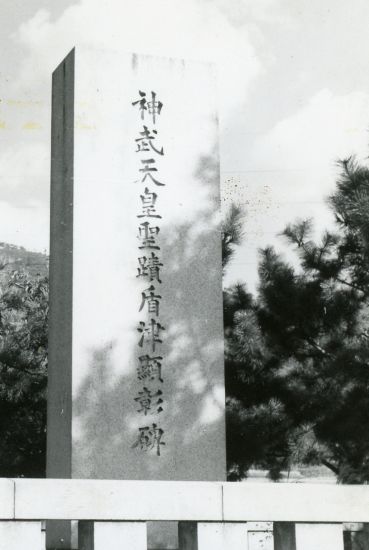 神武天皇聖蹟盾津顯彰碑